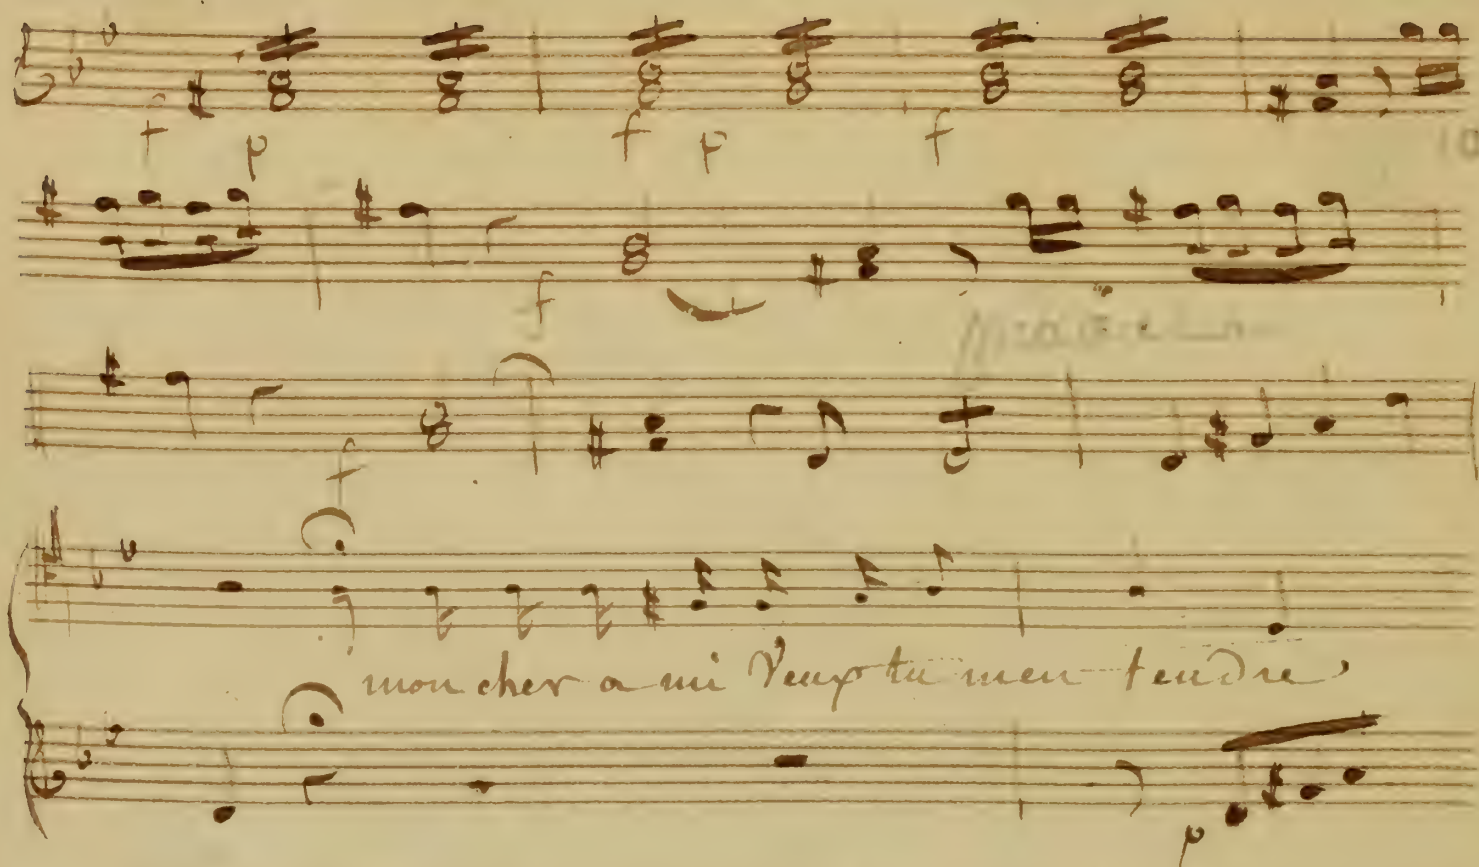 f p f p f
10
f
f
mon cher a mi Veux tu men tendre
p